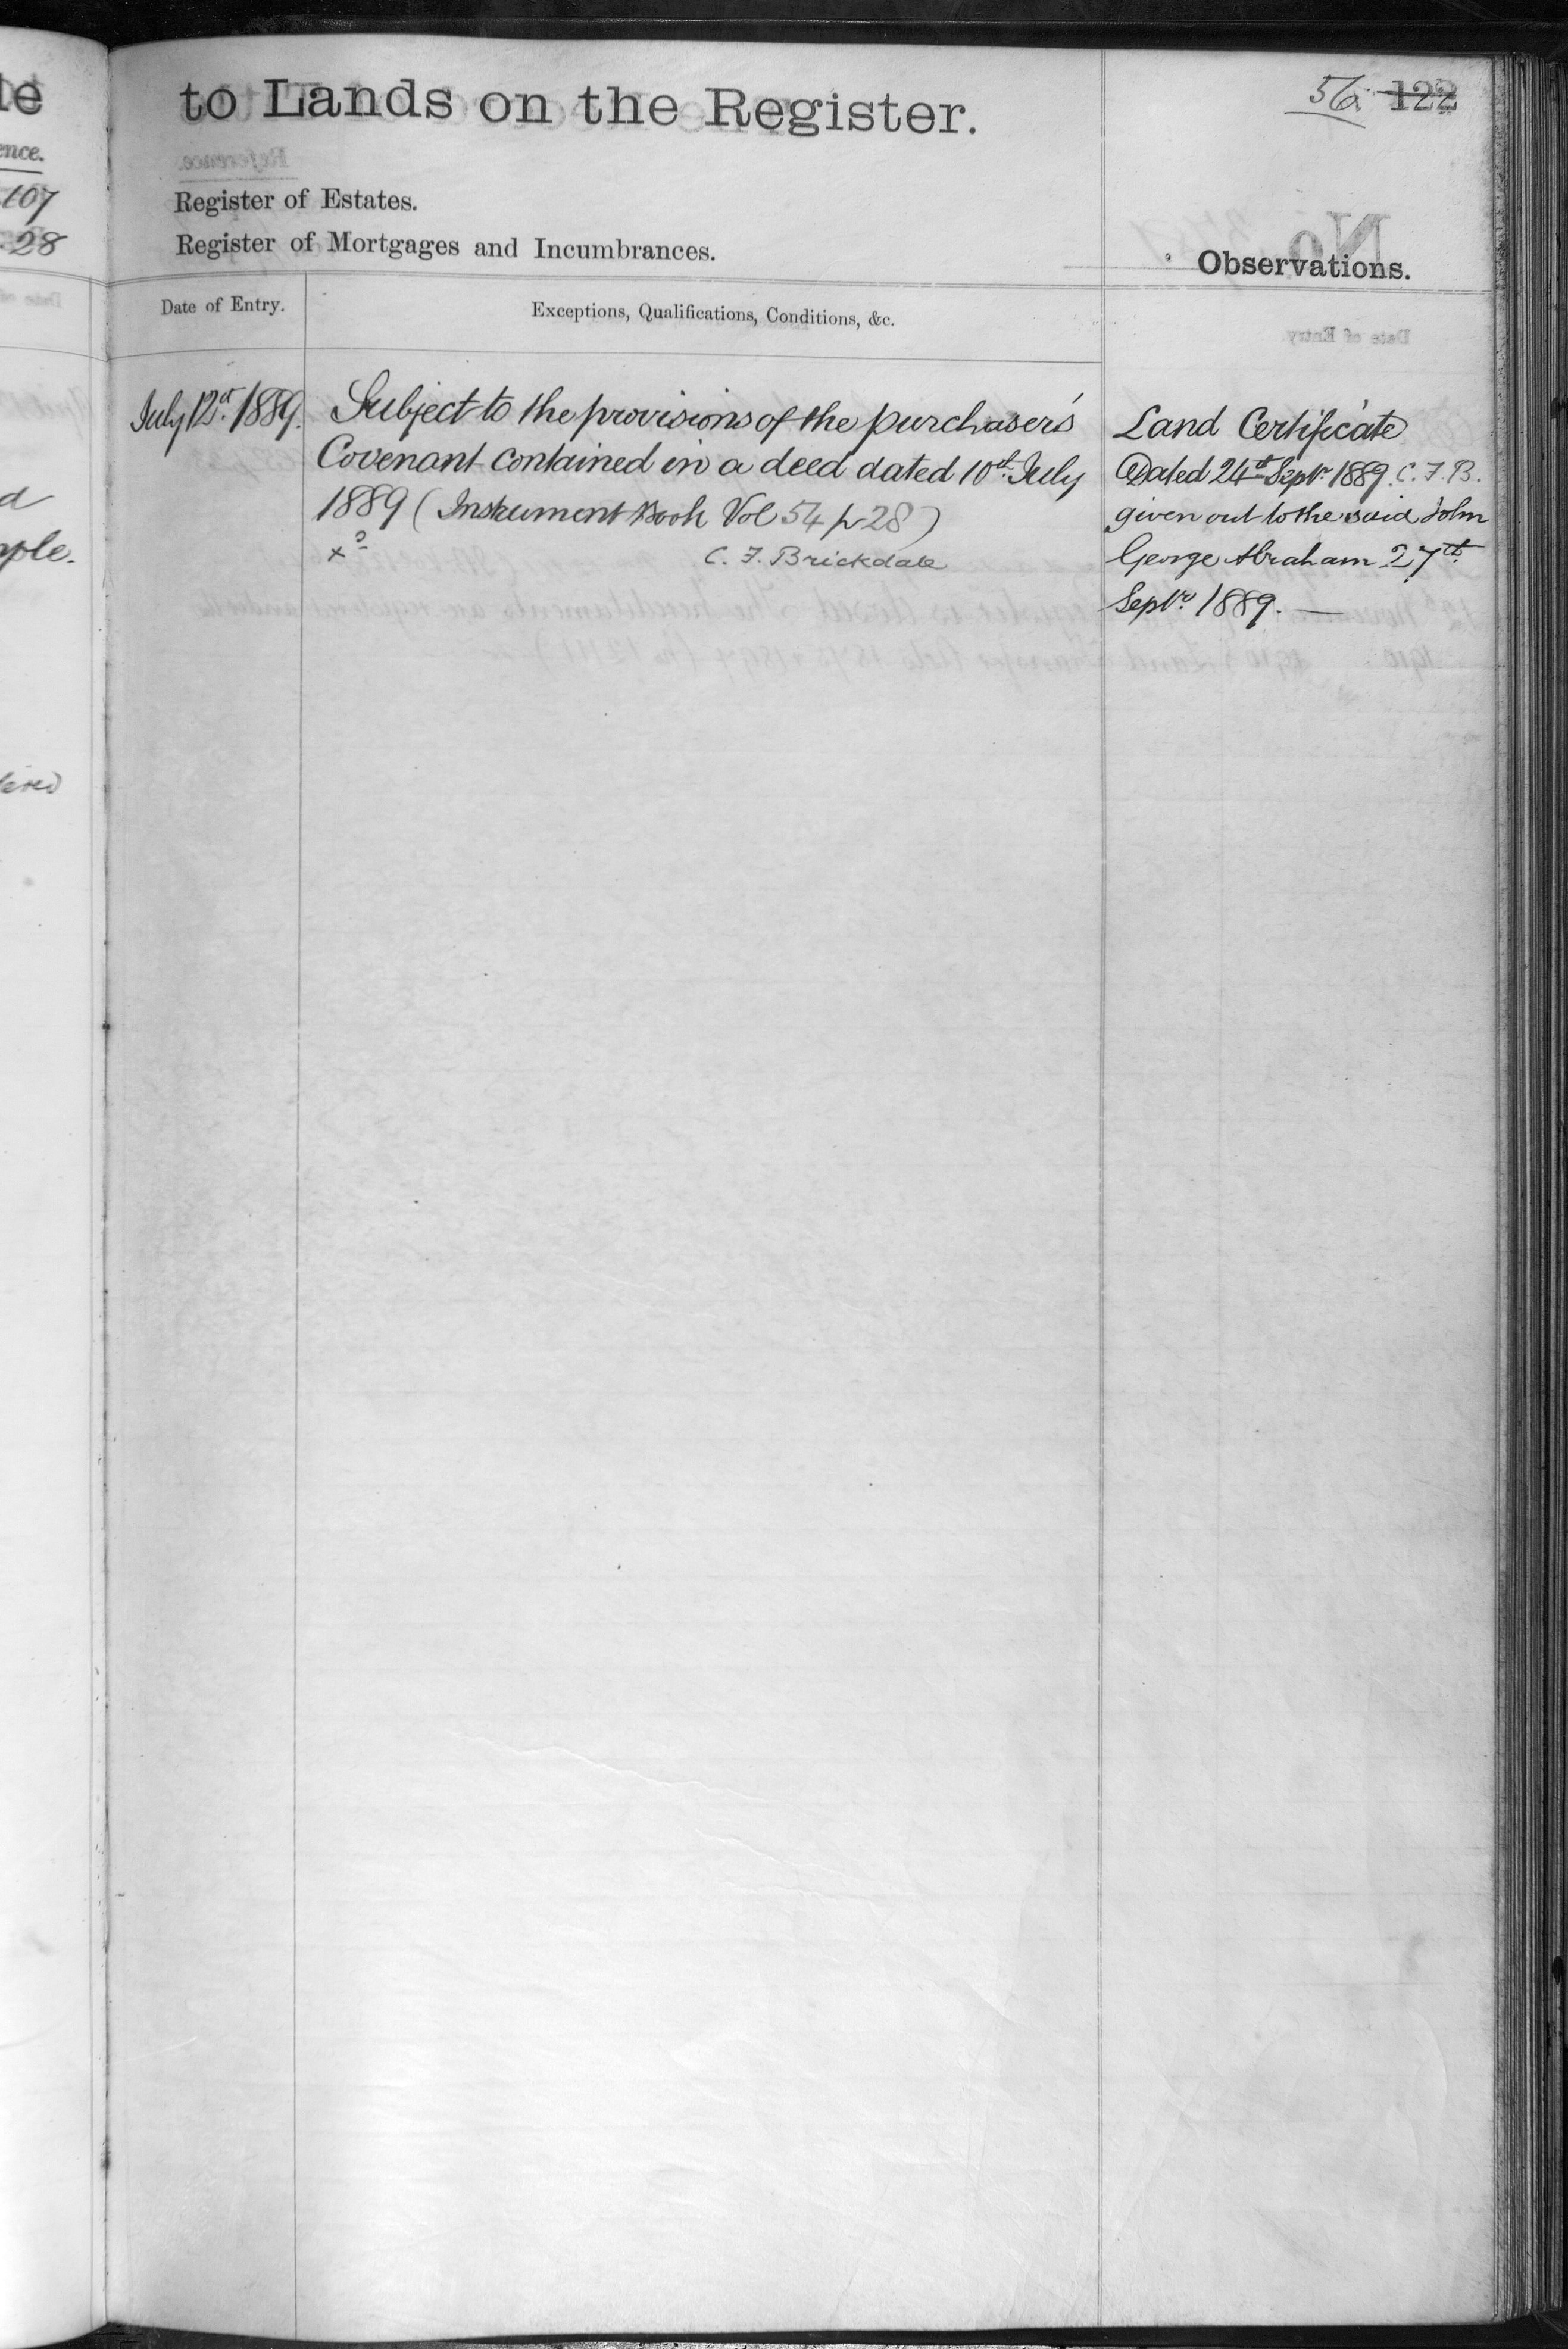 le
ence.
107
28
d
ple.
to Lands on the Register.
56. 122
Register of Estates.
Register of Mortgages and Incumbrances.
Observations.
Date of Entry.
Exceptions, Qualifications, Conditions, &c.
July 12th. 1889.
Subject to the provisions of the purchaser's
Covenant contained in a deed dated 10th July
1889 (Instrument Book Vol 54 p 28)
C. F. Brickdale
Land Certificate
Dated 24th Septr. 1889. C. F. B.
given out to the said John
George Abraham 27th
Septr. 1889. —